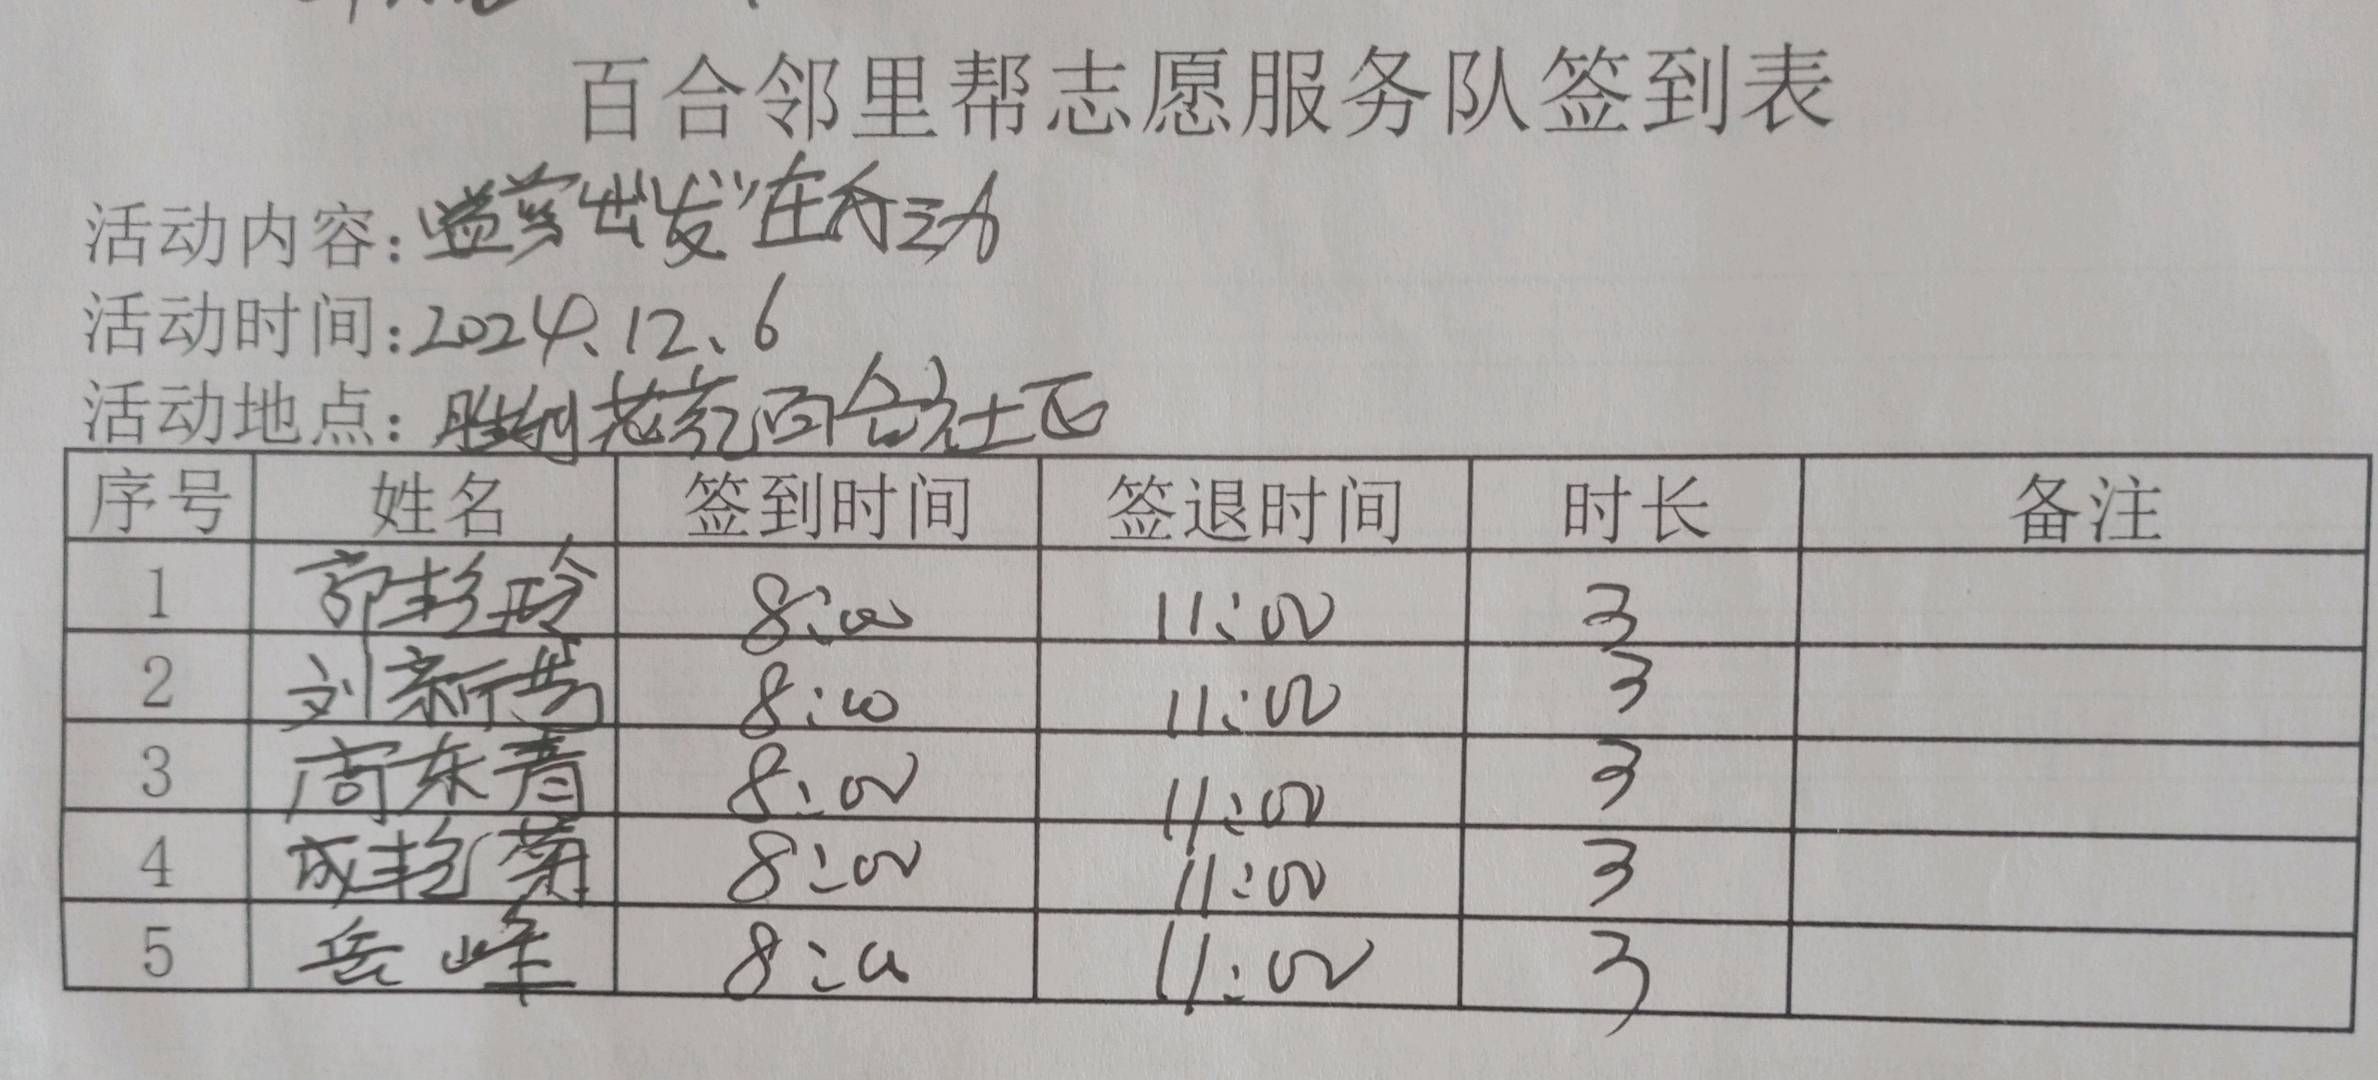 百合邻里帮志愿服务队签到表
活动内容：出发”在行动
活动时间：2024、12、6
活动地点：胜利花苑百合社区
序号 姓名 签到时间 签退时间 时长 备注
1 郭彩玲 8:00 11:00 3
2 刘新芳 8:00 11:00 3
3 周东青 8:00 11:00 3
4 成艳菊 8:00 11:00 3
5 岳峰 8:00 11:00 3